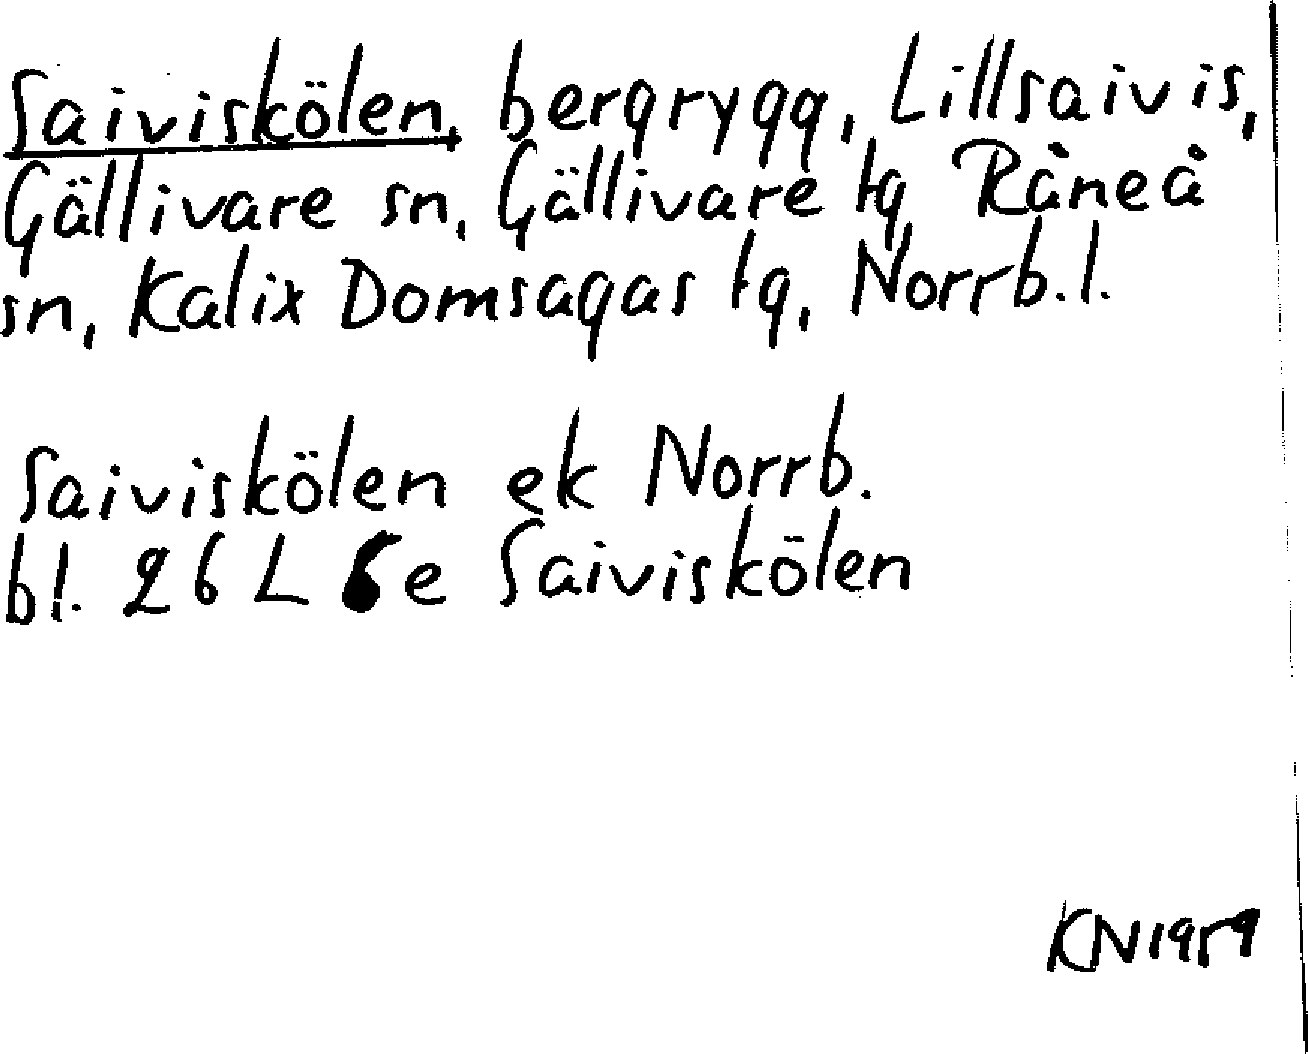 Saiviskölen, bergrygg, Lillsaivis,
Gällivare sn, Gällivare tg Råneå
sn, Kalix Domsagas tg, Norrb.l.
Saiviskölen ek Norrb.
bl. 26 L 6e Saiviskölen
KN 1959